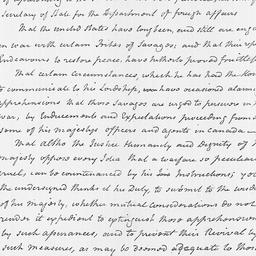 Secretary of State for the Department of foreign affairs
That the United States have long been, and still are eng
in war with certain Tribes of Savages; and that their
Endeavours to restore peace, have hitherto proved fruitless
That certain Circumstances, which he has had the Hon
to communicate to his Lordship, have occasioned alarmi
apprehensions that those Savages are urged to persevere in
war, by Inducements and Expectations proceeding from
some of his majestys officers and agents in canada—
That altho the Justice Humanity and Dignity of h
majesty opposes every Idea that a warfare so peculiar
cruel, can be countenanced by his Instructions; y
the undersigned thinks it his Duty, to submit to the consid
of his majesty, whether mutual considerations do not
render it expedient to extinguish those apprehensions
by such assurances, and to prevent their Revival by
such measures, as may be deemed adequate to those